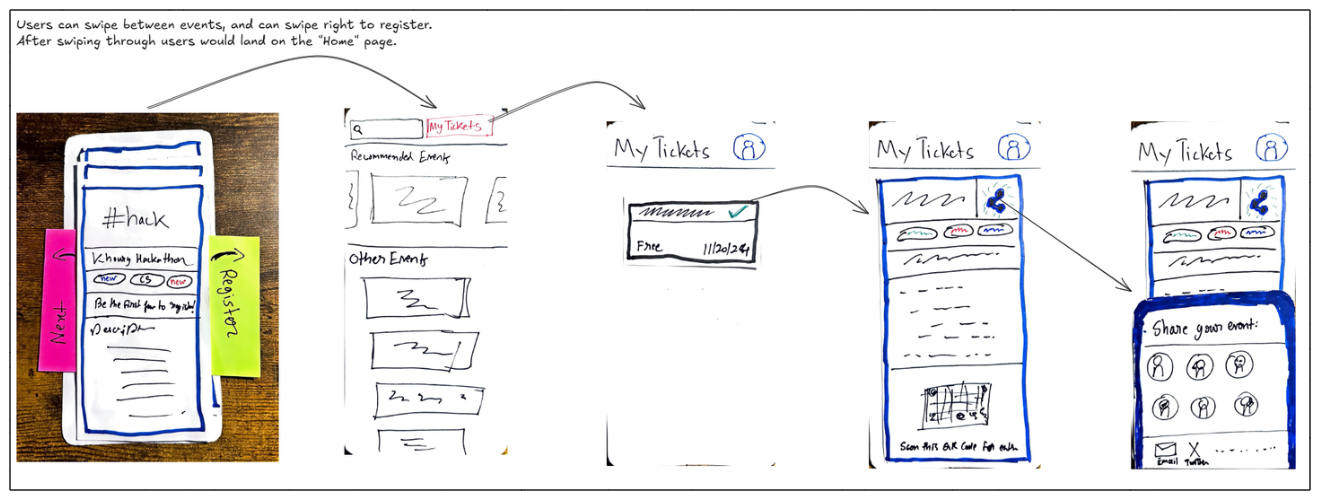 Users can swipe between events, and can swipe right to register.
After swiping through users would land on the "Home" page.
#hack
Hackathon
new
CS
new
Be the First few to register!
Next
Register
My Tickets
Recommended Events
Other Events
My Tickets
Free 11/20/24
My Tickets
Scan this QR Code for
My Tickets
Share your event:
Email
Twitter